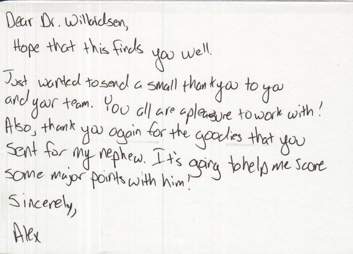 Dear Dr. Willoidsen,
Hope that this finds you well.
Just wanted to send a small thank you to you
and your team. You all are a pleasure to work with!
Also, thank you again for the goodies that you
sent for my nephew. It's going to help me score
some major points with him!
Sincerely,
Alex